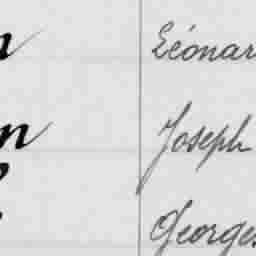 n Léonar
n Joseph
Georges